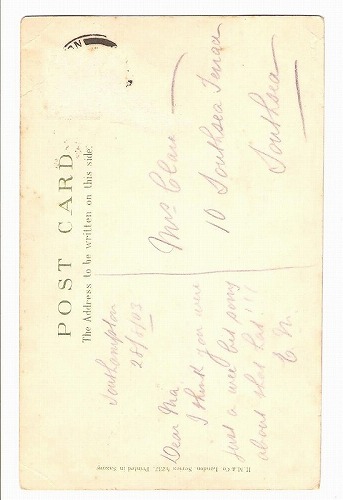 POST CARD.
The Address to be written on this side.
Southampton
28/1/03
Dear Ma
I think you were
just a wee bit
about that hat!!!
E. M.
Mrs Clare
10 Southsea Terrace
Southsea
H. M. & Co. London. Series Printed in Saxony